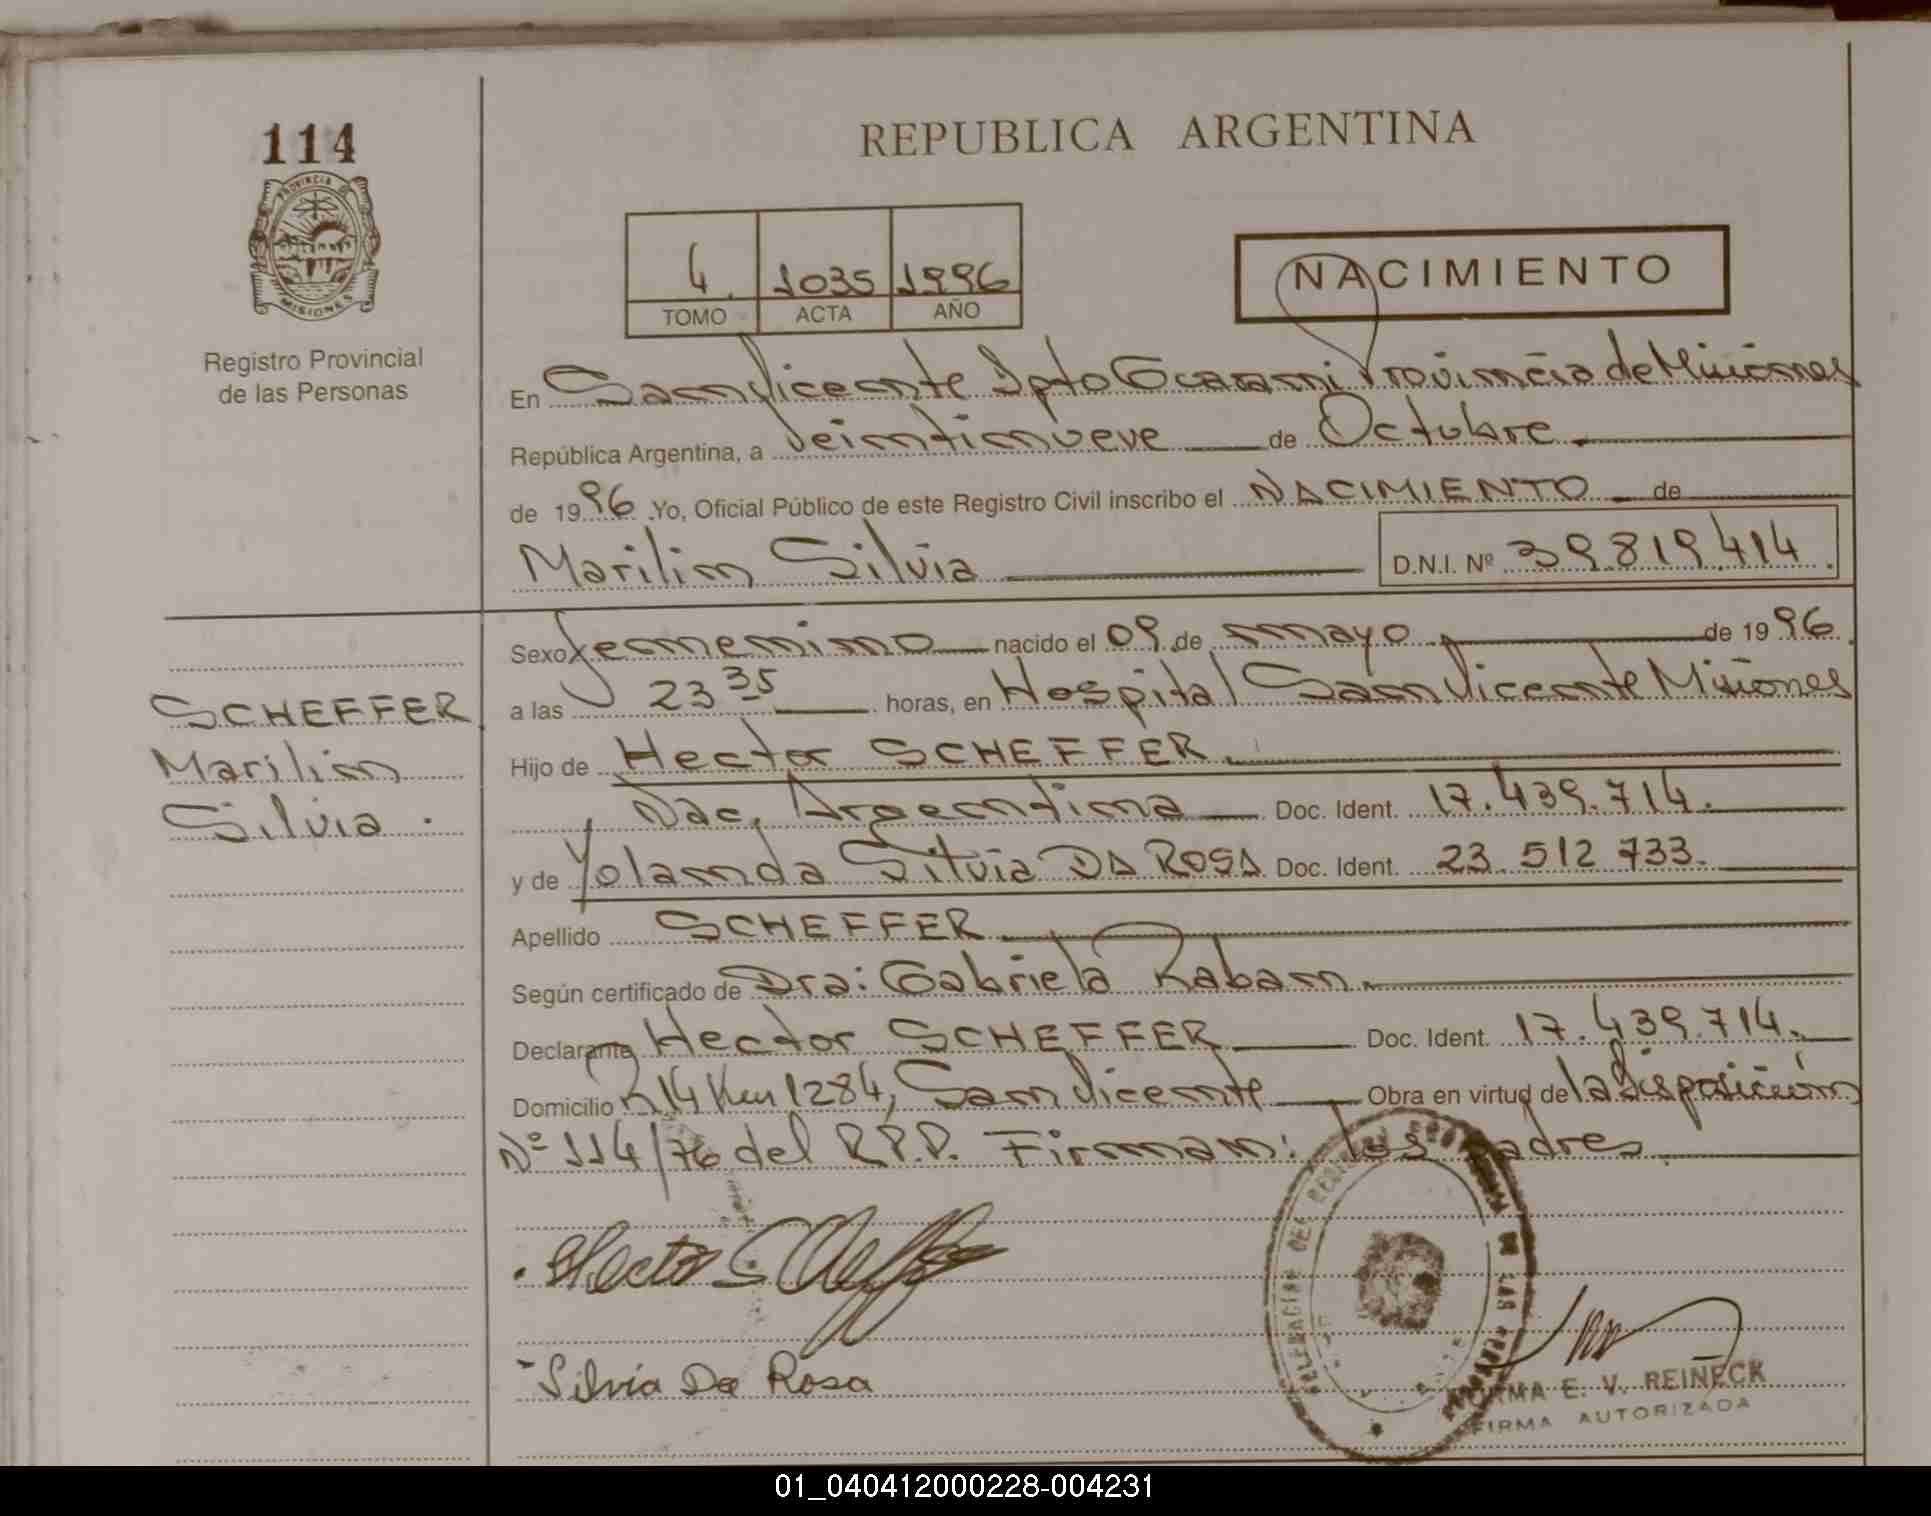 114
PROVINCIA DE
MISIONES
Registro Provincial
de las Personas
REPUBLICA ARGENTINA
4. 1035 1996
TOMO ACTA AÑO
NACIMIENTO
En San Vicente Dpto Guarani Provincia de Misiones
República Argentina, a Veintinueve de Octubre
de 1996 Yo, Oficial Público de este Registro Civil inscribo el NACIMIENTO de
Marilin Silvia D.N.I. Nº 39.819.414.
SCHEFFER
Marilin
Silvia.
Sexo femenino nacido el 09 de mayo de 1996.
a las 23 35 horas, en Hospital San Vicente Misiones
Hijo de Hector SCHEFFER
Nac. Argentina Doc. Ident. 17.439.714.
y de Yolanda Silvia DA ROSA Doc. Ident. 23.512.733.
Apellido SCHEFFER
Según certificado de Dra: Gabriela Raban.
Declarante Hector SCHEFFER Doc. Ident. 17.439.714.
Domicilio R 14 Km 1284, San Vicente Obra en virtud de la Disposición
Nº 114/76 del R.P.P. Firman: los padres
Hector Scheffer
Silvia Da Rosa
E. V. REINECK
FIRMA AUTORIZADA
01_040412000228-004231